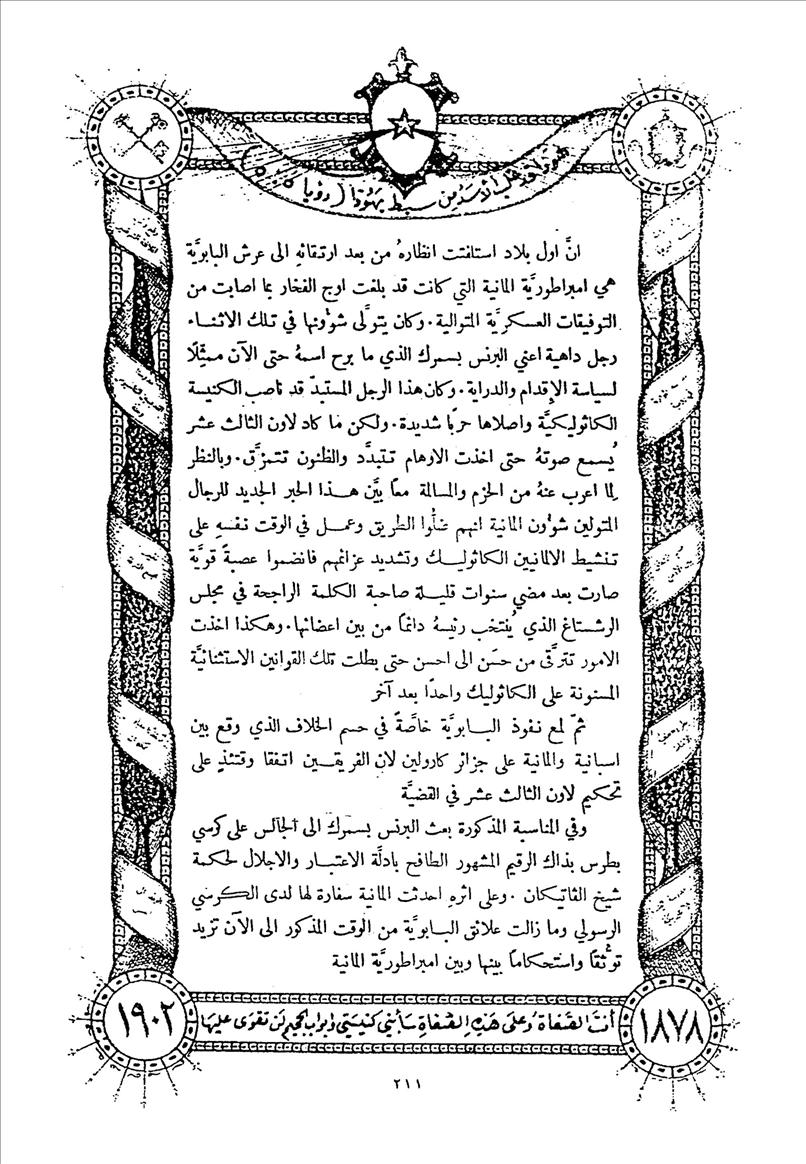 هوذا قد غلب الاسد من سبط يهوذا (رؤيا ٥ : ٥)
انَّ اول بلاد استلفتت انظارهُ من بعد ارتقائهِ الى عرش البابويَّة
هي امبراطوريَّة المانية التي كانت قد بلغت اوج الفخار بما اصابت من
التوفيقات العسكريَّة المتوالية. وكان يتولَّى شوُونها في تلك الاثناء
رجل داهية اعني البرنس بسمرك الذي ما برح اسمهُ حتى الآن ممثّلًا
لسياسة الإِقدام والدراية. وكان هذا الرجل المستبدّ قد ناصب الكنيسة
الكاثوليكيَّة واصلاها حربًا شديدة. ولكن ما كاد لاون الثالث عشر
يُسمع صوتهُ حتى اخذت الاوهام تتبدَّد والظنون تتمزَّق. وبالنظر
لِما اعرب عنهُ من الحزم والمسالمة معًا بيَّن هذا الحبر الجديد للرجال
المتولين شوُون المانية انهم ضلُّوا الطريق وعمل في الوقت نفسهِ على
تنشيط الالمانيين الكاثوليك وتشديد عزائمهم فانضموا عصبةً قويَّة
صارت بعد مضي سنوات قليلة صاحبة الكلمة الراجحة في مجلس
الرشستاغ الذي يُنتخب رئيسهُ دائمًا من بين اعضائها. وهكذا اخذت
الامور تترقَّى من حسَن الى احسن حتى بطلت تلك القوانين الاستثنائيَّة
المسنونة على الكاثوليك واحدًا بعد آخر
ثمّ لمع نفوذ البابويَّة خاصَّةً في حسم الخلاف الذي وقع بين
اسبانية والمانية على جزائر كارولين لان الفريقين اتفقا وقتئذٍ على
تحكيم لاون الثالث عشر في القضيَّة
وفي المناسبة المذكورة بعث البرنس بسمرك الى الجالس على كرسي
بطرس بذاك الرقيم المشهور الطافح بادلَّة الاعتبار والاجلال لحكمة
شيخ الڤاتيكان. وعلى اثرهِ احدثت المانية سفارة لها لدى الكرسي
الرسولي وما زالت علائق البابويَّة من الوقت المذكور الى الآن تزيد
توثُّقًا واستحكامًا بينها وبين امبراطوريَّة المانية
١٨٧٨
أنتَ الصَّفاة وعلى هَذِهِ الصَّفاةِ سأبني كنيستي وابواب الجحيم لَن تقوى عليها
١٩٠٢
٢١١